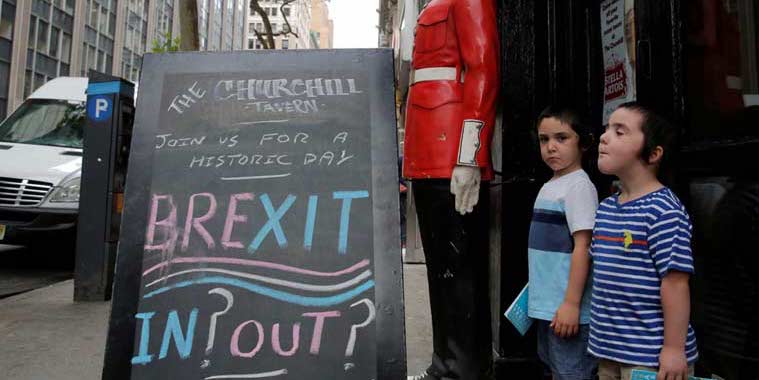 P
THE CHURCHILL
TAVERN
JOIN US FOR A
HISTORIC DAY
BREXIT
IN? OUT?
STELLA
ARTOIS